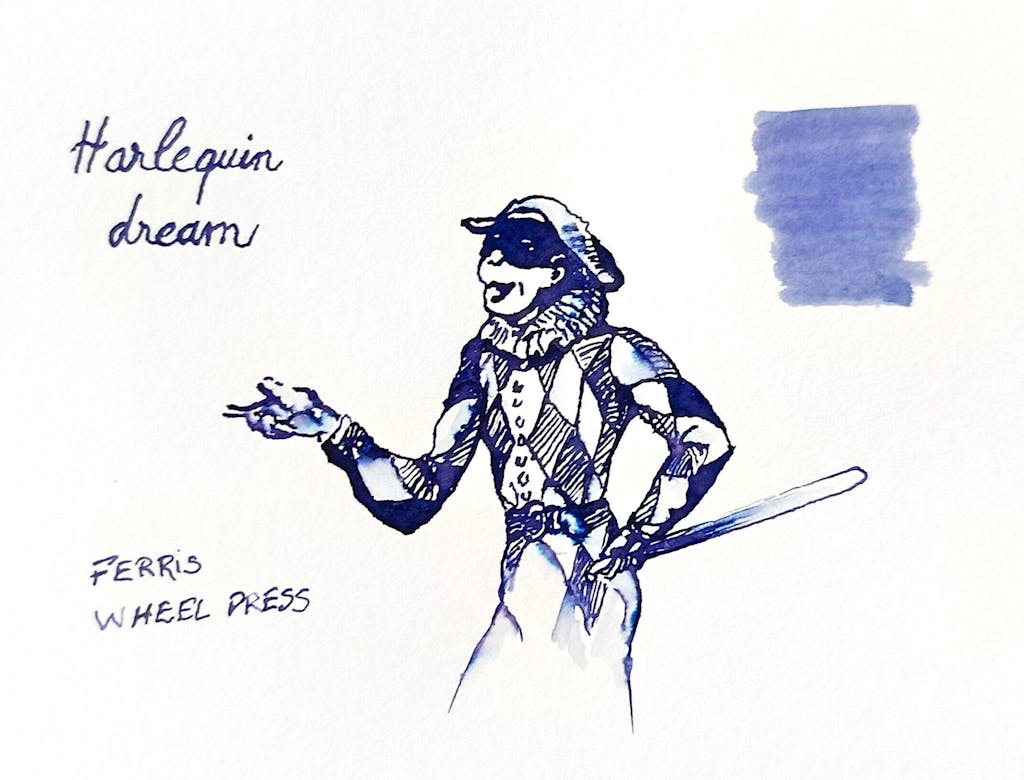 Harlequin
dream
FERRIS
WHEEL PRESS